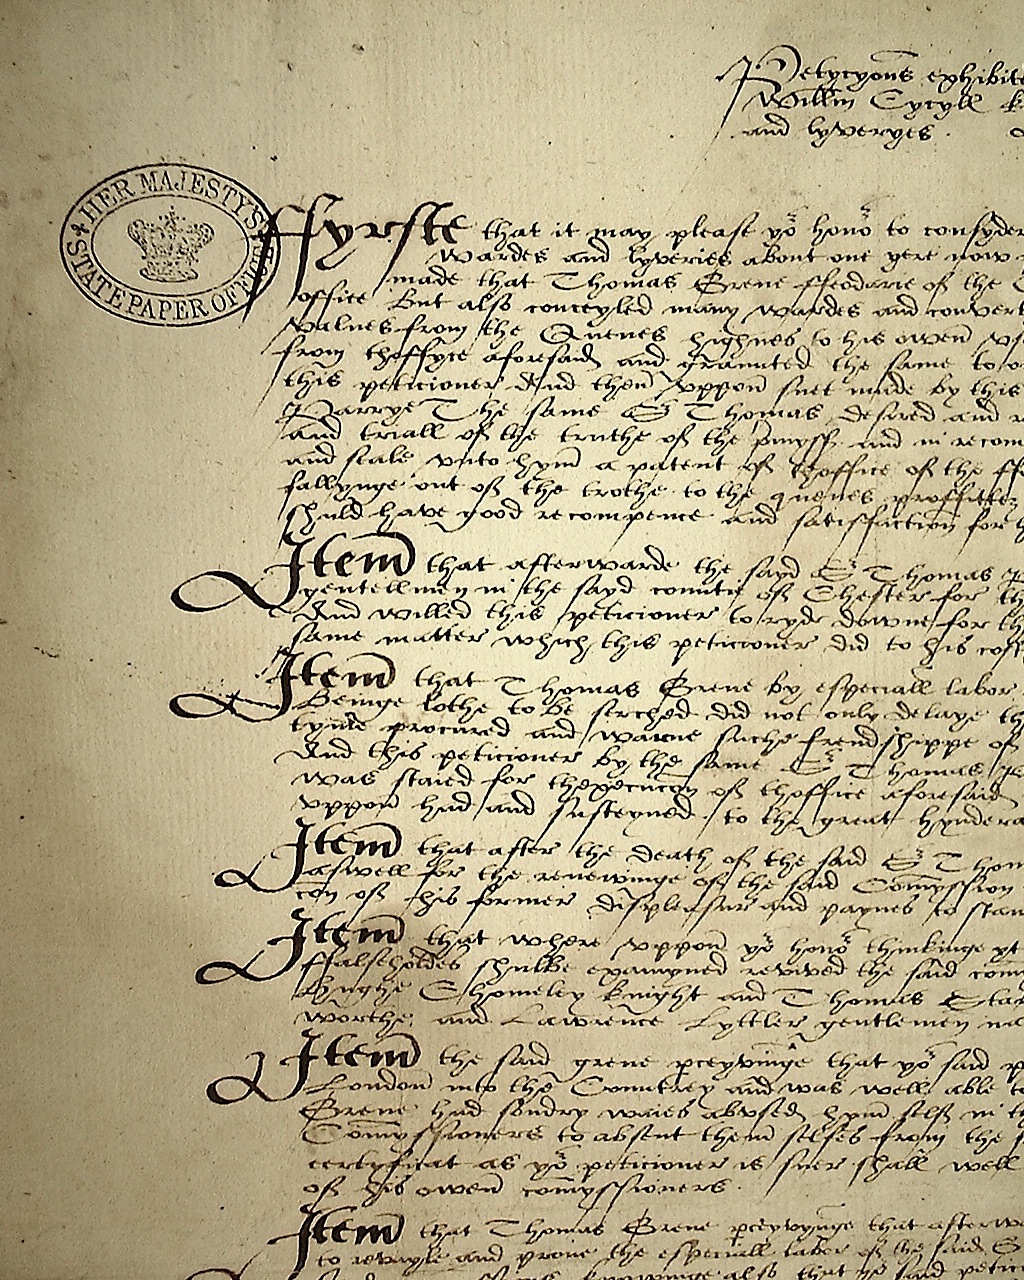 Petycyons exhibite
Willm Cycyll k
and lyveryes .
HER MAJESTYS
STATE PAPER OFFICE
Ffyrste that it may please yor honor to consyder
wardes and lyveries about one yere now
made that Thomas Grene ffeodarie of the C
office but also conceyled many wardes and convert
values from the Quenes highnes to his owen vs
from thoffyce aforesaid and graunted the same to
this peticioner And then vppon suet made by this
Parrye The same Sr Thomas desired and
and triall of the truthe of the pmyss and in recom
and seale vnto hym a patent of thoffice of the ff
fallynge out of the trothe to the quenes proffitte
shuld have good recompence and satisfaction for h
Item that afterwarde the sayd Sr Thomas
gentellmen in the sayd countie of Chester for th
And willed this peticioner to ryde downe for th
same matter which this peticioner did to his cost
Item that Thomas Grene by especiall labor
Beinge lothe to be serched did not only delaye th
tyme procured and warne suche frendshippe of
And this peticioner by the same Sr Thomas
was staied for thexecucon of thoffice aforesaid
vppon had and susteyned to the great hyndera
Item that after the death of the said Sr Thom
aswell for the renewinge of the said Comyssion
con of his former displeasur and paynes to stan
Item that where vppon yor honor thinkinge yt
ffalsehodes shulbe examyned revived the said com
Hughe Cholmeley knight and Thomas Sta
worthe and Lawrence Lyttler gentlemen
Item the said grene pceyvinge that yor said p
London into the Countrey and was well able to
Grene had sondry waies abused hym self in th
Comyssioners to absent them selfes from the s
certyficat as yor peticioner is suer shall well
of his owen comyssioners .
Item that Thomas Grene pceyvynge that afterw
to revayle and prove the especiall labor of the said S
knowinge also that yor said petici